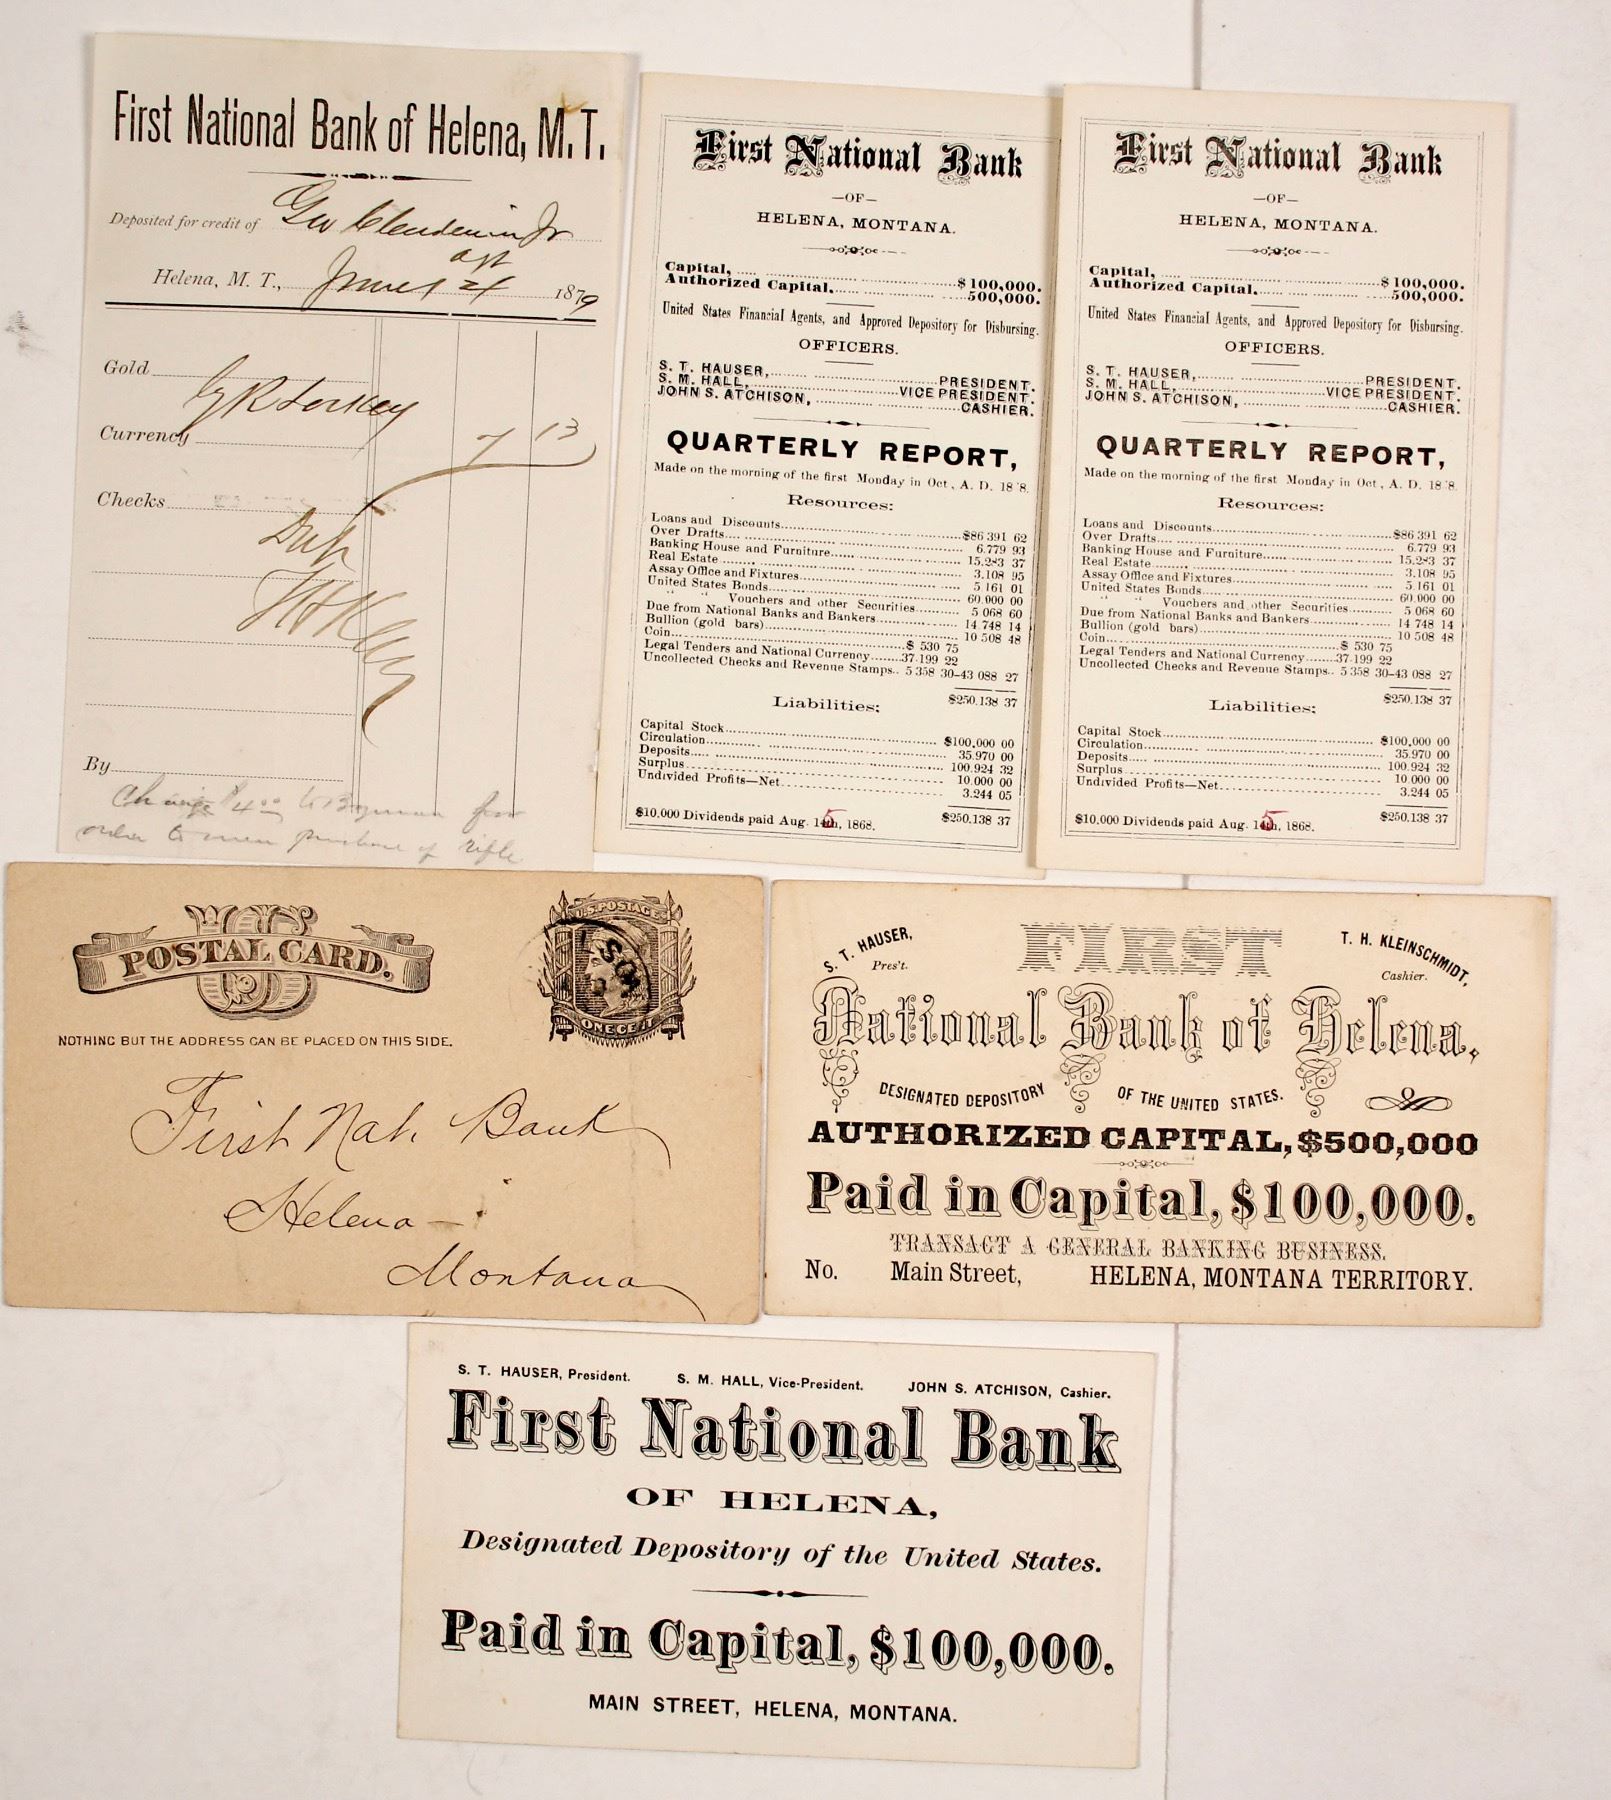 First National Bank of Helena, M.T.
Deposited for credit of Geo Clendennin Jr
agt
Helena, M. T., 1879
Gold
Currency 7 13
Checks
By
Charge $4.00 to for
order to purchase of rifle
First National Bank
—OF—
HELENA, MONTANA.
Capital, $100,000.
Authorized Capital. 500,000.
United States Financial Agents, and Approved Depository for Disbursing.
OFFICERS.
S. T. HAUSER, PRESIDENT.
S. M. HALL, VICE PRESIDENT.
JOHN S. ATCHISON, CASHIER.
QUARTERLY REPORT,
Made on the morning of the first Monday in Oct, A. D. 18 8.
Resources:
Loans and Discounts $86 391 62
Over Drafts 6.779 93
Banking House and Furniture 15.283 37
Real Estate 3.108 95
Assay Office and Fixtures 5 161 01
United States Bonds 60.000 00
" " Vouchers and other Securities 5 068 60
Due from National Banks and Bankers 14 748 14
Bullion (gold bars) 10 508 48
Coin $ 530 75
Legal Tenders and National Currency 37.199 22
Uncollected Checks and Revenue Stamps.. 5 358 30–43 088 27
$250.138 37
Liabilities:
Capital Stock $100,000 00
Circulation 35.970 00
Deposits 100.924 32
Surplus 10.000 00
Undivided Profits—Net 3.244 05
$250.138 37
$10,000 Dividends paid Aug. 15th, 1868.
First National Bank
—OF—
HELENA, MONTANA.
Capital, $100,000.
Authorized Capital. 500,000.
United States Financial Agents, and Approved Depository for Disbursing.
OFFICERS.
S. T. HAUSER, PRESIDENT.
S. M. HALL, VICE PRESIDENT.
JOHN S. ATCHISON, CASHIER.
QUARTERLY REPORT,
Made on the morning of the first Monday in Oct, A. D. 18 8.
Resources:
Loans and Discounts $86 391 62
Over Drafts 6.779 93
Banking House and Furniture 15.283 37
Real Estate 3.108 95
Assay Office and Fixtures 5 161 01
United States Bonds 60.000 00
" " Vouchers and other Securities 5 068 60
Due from National Banks and Bankers 14 748 14
Bullion (gold bars) 10 508 48
Coin $ 530 75
Legal Tenders and National Currency 37.199 22
Uncollected Checks and Revenue Stamps.. 5 358 30–43 088 27
$250.138 37
Liabilities:
Capital Stock $100,000 00
Circulation 35.970 00
Deposits 100.924 32
Surplus 10.000 00
Undivided Profits—Net 3.244 05
$250.138 37
$10,000 Dividends paid Aug. 15th, 1868.
US
POSTAL CARD.
U.S. POSTAGE
ONE CENT
NOTHING BUT THE ADDRESS CAN BE PLACED ON THIS SIDE.
First Nat. Bank
Helena –
Montana
S. T. HAUSER,
Pres't.
T. H. KLEINSCHMIDT,
Cashier.
FIRST
National Bank of Helena,
DESIGNATED DEPOSITORY OF THE UNITED STATES.
AUTHORIZED CAPITAL, $500,000
Paid in Capital, $100,000.
TRANSACT A GENERAL BANKING BUSINESS.
No. Main Street, HELENA, MONTANA TERRITORY.
S. T. HAUSER, President. S. M. HALL, Vice-President. JOHN S. ATCHISON, Cashier.
First National Bank
OF HELENA,
Designated Depository of the United States.
Paid in Capital, $100,000.
MAIN STREET, HELENA, MONTANA.